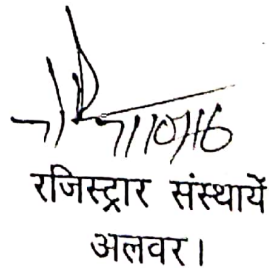 रजिस्ट्रार संस्थायें
अलवर।